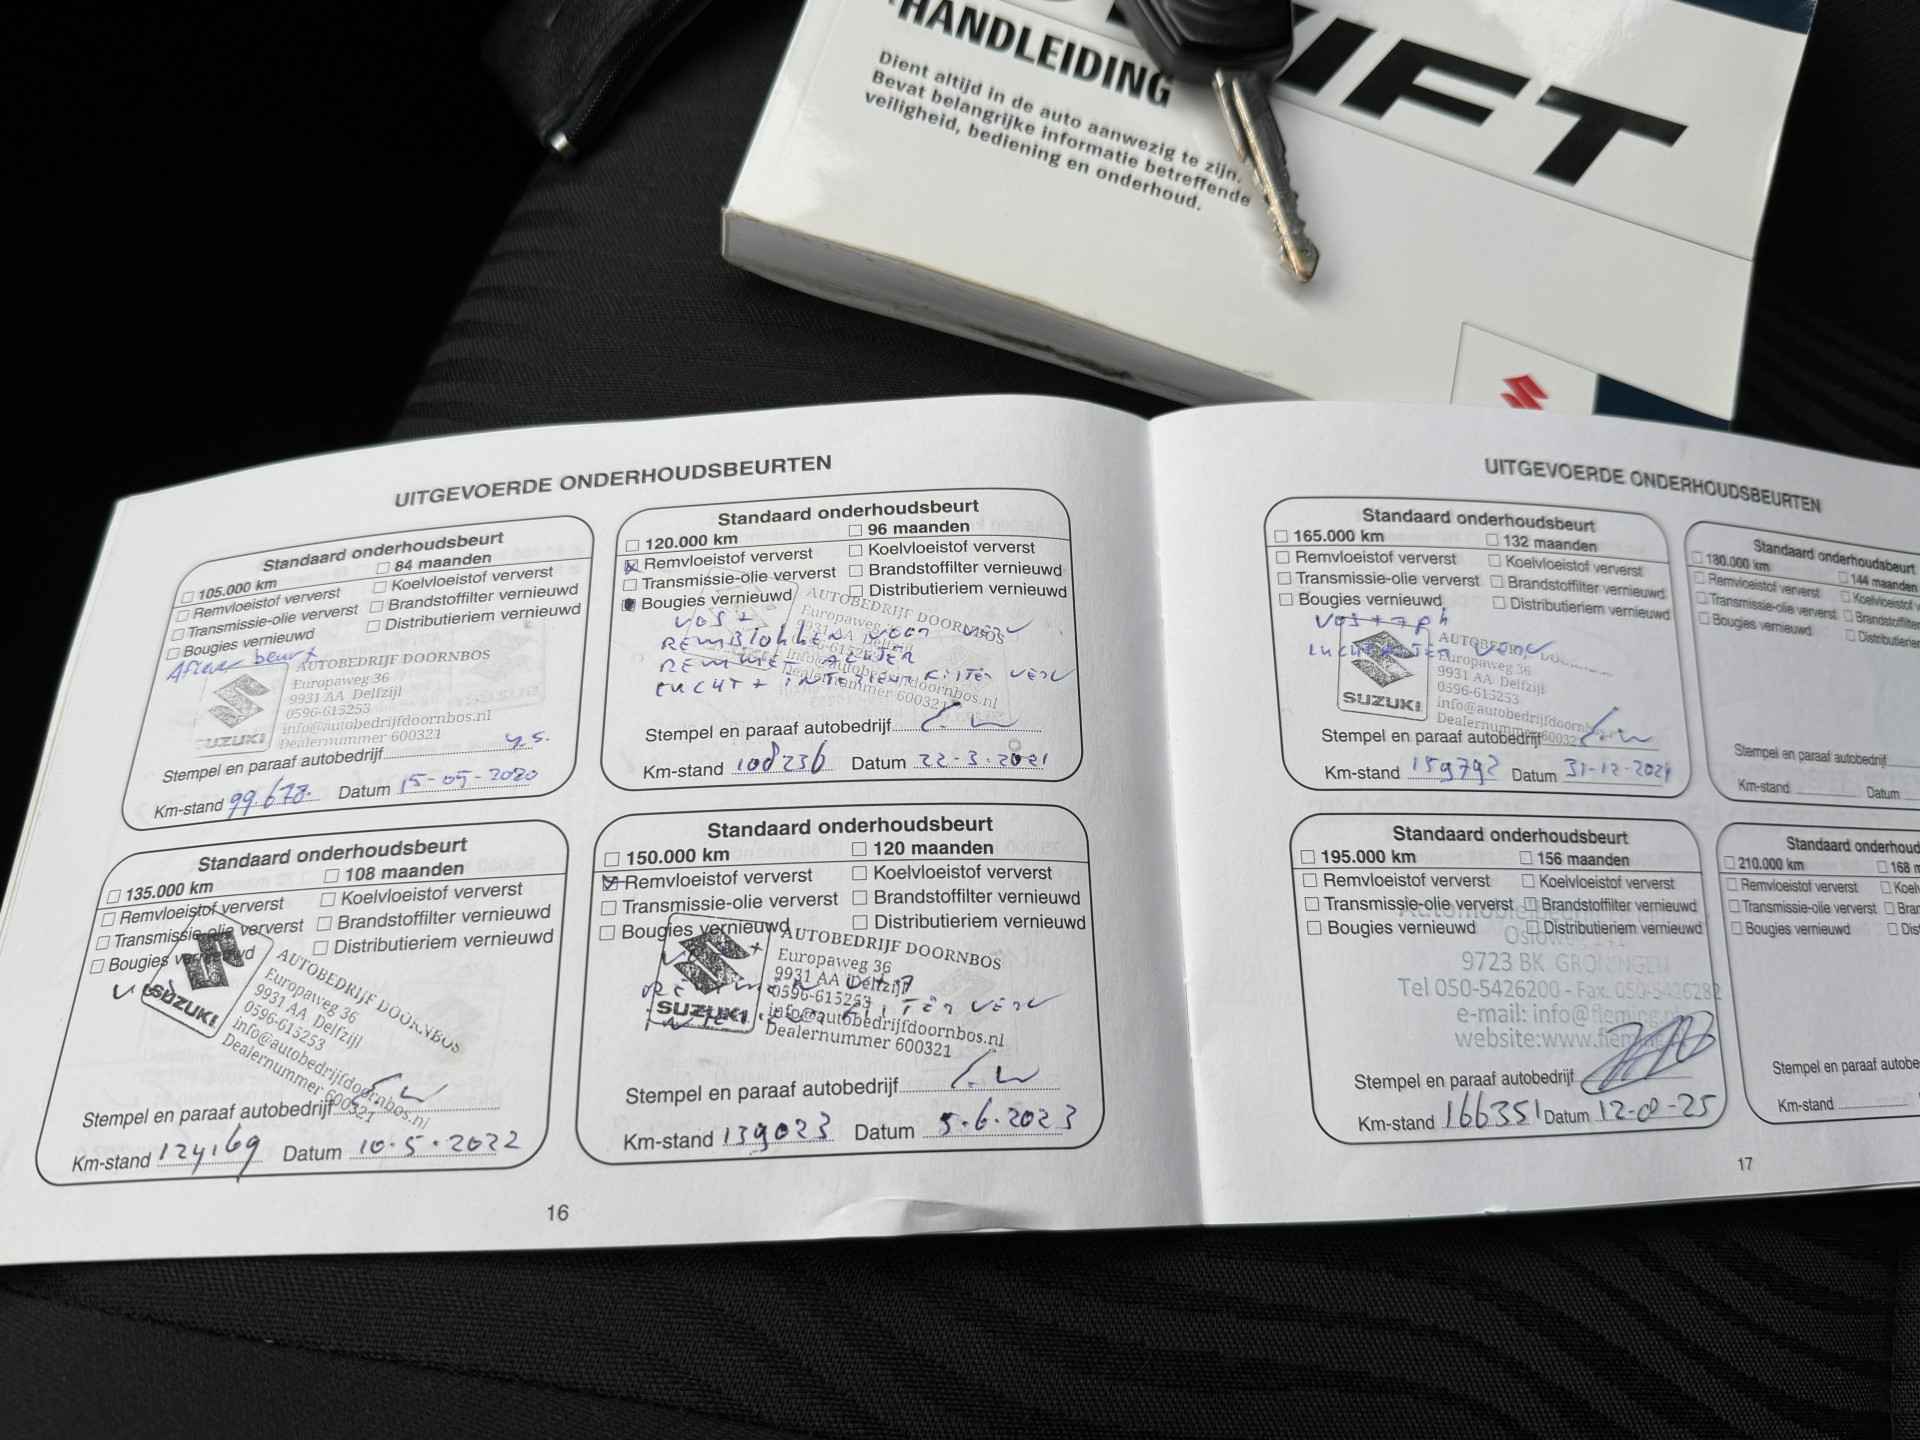 HANDLEIDING
IFT
Dient altijd in de auto aanwezig te zijn.
Bevat belangrijke informatie betreffende
veiligheid, bediening en onderhoud.
UITGEVOERDE ONDERHOUDSBEURTEN
Standaard onderhoudsbeurt
105.000 km 84 maanden
Remvloeistof ververst Koelvloeistof ververst
Transmissie-olie ververst Brandstoffilter vernieuwd
Bougies vernieuwd Distributieriem vernieuwd
Aflever beurt
AUTOBEDRIJF DOORNBOS
Europaweg 36
9931 AA Delfzijl
0596-615253
info@autobedrijfdoornbos.nl
SUZUKI Dealernummer 600321
Stempel en paraaf autobedrijf
Km-stand 99678 Datum 15-05-2020
Standaard onderhoudsbeurt
120.000 km 96 maanden
Remvloeistof ververst Koelvloeistof ververst
Transmissie-olie ververst Brandstoffilter vernieuwd
Bougies vernieuwd Distributieriem vernieuwd
AUTOBEDRIJF DOORNBOS
Europaweg 36
9931 AA Delfzijl
REMBLOKKEN VOOR VERV
REMMEN ACHTER
LUCHT + INTERIEUR FILTER VERV
Dealernummer 600321
Stempel en paraaf autobedrijf
Km-stand 108236 Datum 22-3-2021
Standaard onderhoudsbeurt
135.000 km 108 maanden
Remvloeistof ververst Koelvloeistof ververst
Transmissie-olie ververst Brandstoffilter vernieuwd
Bougies vernieuwd Distributieriem vernieuwd
SUZUKI
AUTOBEDRIJF DOORNBOS
Europaweg 36
9931 AA Delfzijl
0596-615253
info@autobedrijfdoornbos.nl
Dealernummer 600321
Stempel en paraaf autobedrijf
Km-stand 124169 Datum 10-5-2022
Standaard onderhoudsbeurt
150.000 km 120 maanden
Remvloeistof ververst Koelvloeistof ververst
Transmissie-olie ververst Brandstoffilter vernieuwd
Bougies vernieuwd Distributieriem vernieuwd
AUTOBEDRIJF DOORNBOS
Europaweg 36
9931 AA Delfzijl
0596-615253
FILTER VERV
SUZUKI info@autobedrijfdoornbos.nl
Dealernummer 600321
Stempel en paraaf autobedrijf
Km-stand 139023 Datum 5-6-2023
16
UITGEVOERDE ONDERHOUDSBEURTEN
Standaard onderhoudsbeurt
165.000 km 132 maanden
Remvloeistof ververst Koelvloeistof ververst
Transmissie-olie ververst Brandstoffilter vernieuwd
Bougies vernieuwd Distributieriem vernieuwd
AUTOBEDRIJF
Europaweg 36
9931 AA Delfzijl
0596-615253
SUZUKI
Stempel en paraaf autobedrijf
Km-stand 159792 Datum 31-12-2024
Standaard onderhoudsbeurt
180.000 km 144 maanden
Remvloeistof ververst Koelvloeistof
Transmissie-olie ververst Brandstoffilter
Bougies vernieuwd
Stempel en paraaf autobedrijf
Km-stand Datum
Standaard onderhoudsbeurt
195.000 km 156 maanden
Remvloeistof ververst Koelvloeistof ververst
Transmissie-olie ververst Brandstoffilter vernieuwd
Bougies vernieuwd Distributieriem vernieuwd
9723 BK GRONINGEN
Tel 050-5426200 - Fax. 050-5426282
e-mail: info@fleming.nl
Stempel en paraaf autobedrijf
Km-stand 166351 Datum
210.000 km 168
Remvloeistof ververst
Transmissie-olie ververst
Bougies vernieuwd
Stempel en paraaf
Km-stand
17